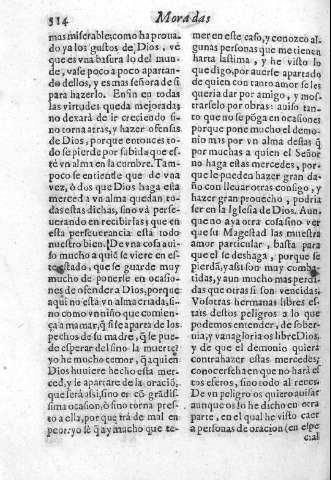 514 Moradas
mas miserable; como ha proua-
do ya los gustos de Dios, vè
que es vna basura lo del mun-
de, vase poco a poco apartan-
do dellos, y es mas señora de si
para hazerlo. En fin en todas
las virtudes queda mejorada y
no dexarà de ir creciendo si
no torna atras, y hazer ofensas
de Dios, porque entonces to-
do se pierde por subida que es-
tè vn alma en la cumbre. Tam-
poco se entiende que de vna
vez, ò dos que Dios haga esta
merced a vn alma quedan to-
das estas dichas, sino và perse-
uerando en recibirlas; que en
esta perseuerancia està todo
nuestro bien. De vna cosa aui-
so mucho a quiẽ se viere en es-
te estado, que se guarde muy
mucho de ponerse en ocasio-
nes de ofender a Dios, porque
aqui no està vn alma criada, si-
no como vn niño que comien-
ça a mamar, q̃ si se aparta de los
pechos de su madre, q̃ se pue-
de esperar del sino la muerte?
yo he mucho temor, q̃ a quien
Dios huuiere hecho esta mer-
ced, y se apartare de la oraciõ,
que serà assi, sino es cõ grãdis-
sima ocasion, ò sino torna pres-
to a ella, porque irà de mal en
peor: yo sè q̃ ay mucho que te-
mer en este caso, y conozco al-
gunas personas que me tienen
harta lastima, y he visto lo
que digo, por auerse apartado
de quien con tanto amor se les
queria dar por amigo, y mos-
trarselo por obras: auiso tan-
to que no se põga en ocasiones
porque pone mucho el demo-
nio mas por vn alma destas q̃
por muchas a quien el Señor
no haga estas mercedes, por-
que le pueden hazer gran da-
ño con lleuar otras consigo, y
hazer gran prouecho, podria
ser en la Iglesia de Dios. Aun
que no aya otra cosa sino ver
que su Magestad las muestra
amor particular, basta para
que èl se deshaga, porque se
pierdã, y assi son muy comba-
tidas, y aun mucho mas perdi-
das que otras si son vencidas.
Vosotras hermanas libres es-
tais destos peligros a lo que
podemos entender, de sober-
uia, y vanagloria os libre Dios,
y de que el demonio quiera
contrahazer estas mercedes;
conocerseha en que no harà es
tos efetos, sino todo al reues.
De vn peligro os quiero auisar
aunque os lo he dicho en otra
parte, en el qual he visto caer
a personas de oracion (en espe
cial